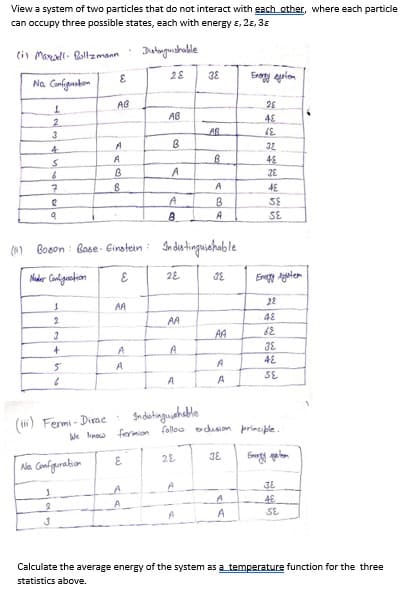 View a system of two particles that do not interact with each other, where each particle
can occupy three possible states, each with energy ε, 2ε, 3ε
(i) Maxwell - Boltzmann : Distinguishable
No. Configuration ε 2ε 3ε Energy system
1 AB 2ε
2 AB 4ε
3 AB 6ε
4 A B 3ε
5 A B 4ε
6 B A 2ε
7 B A 4ε
8 A B 5ε
9 B A 5ε
(ii) Boson : Bose - Einstein : Indistinguishable
Configuration ε 2ε 3ε Energy system
1 AA 2ε
2 AA 4ε
3 AA 6ε
4 A A 3ε
5 A A 4ε
6 A A 5ε
(iii) Fermi - Dirac : Indistinguishable
We know fermion follow exclusion principle.
No. Configuration ε 2ε 3ε Energy system
1 A A 3ε
2 A A 4ε
3 A A 5ε
Calculate the average energy of the system as a temperature function for the three
statistics above.